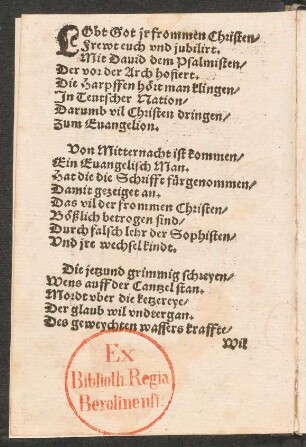 LObt Got jr frommen Christen/
Frewt euch vnd jubilirt.
Mit Dauid dem Psalmisten/
Der vor der Arch hofiert.
Die Harpffen hört man klingen/
In Teutscher Nation/
Darumb vil Christen dringen/
Zum Euangelion.
Von Mitternacht ist kommen/
Ein Euangelisch Man.
Hat die die Schrifft fürgenommen/
Damit gezeiget an.
Das vil der frommen Christen/
Bößlich betrogen sind/
Durch falsch lehr der Sophisten/
Vnd jre wechsel kindt.
Die jetzund grimmig schreyen/
Wens auff der Cantzel stan.
Mordt vber die ketzereye/
Der glaub wil vndergan.
Des geweychten wassers kraffte/
Wil
Ex
Biblioth. Regia
Berolinensi.